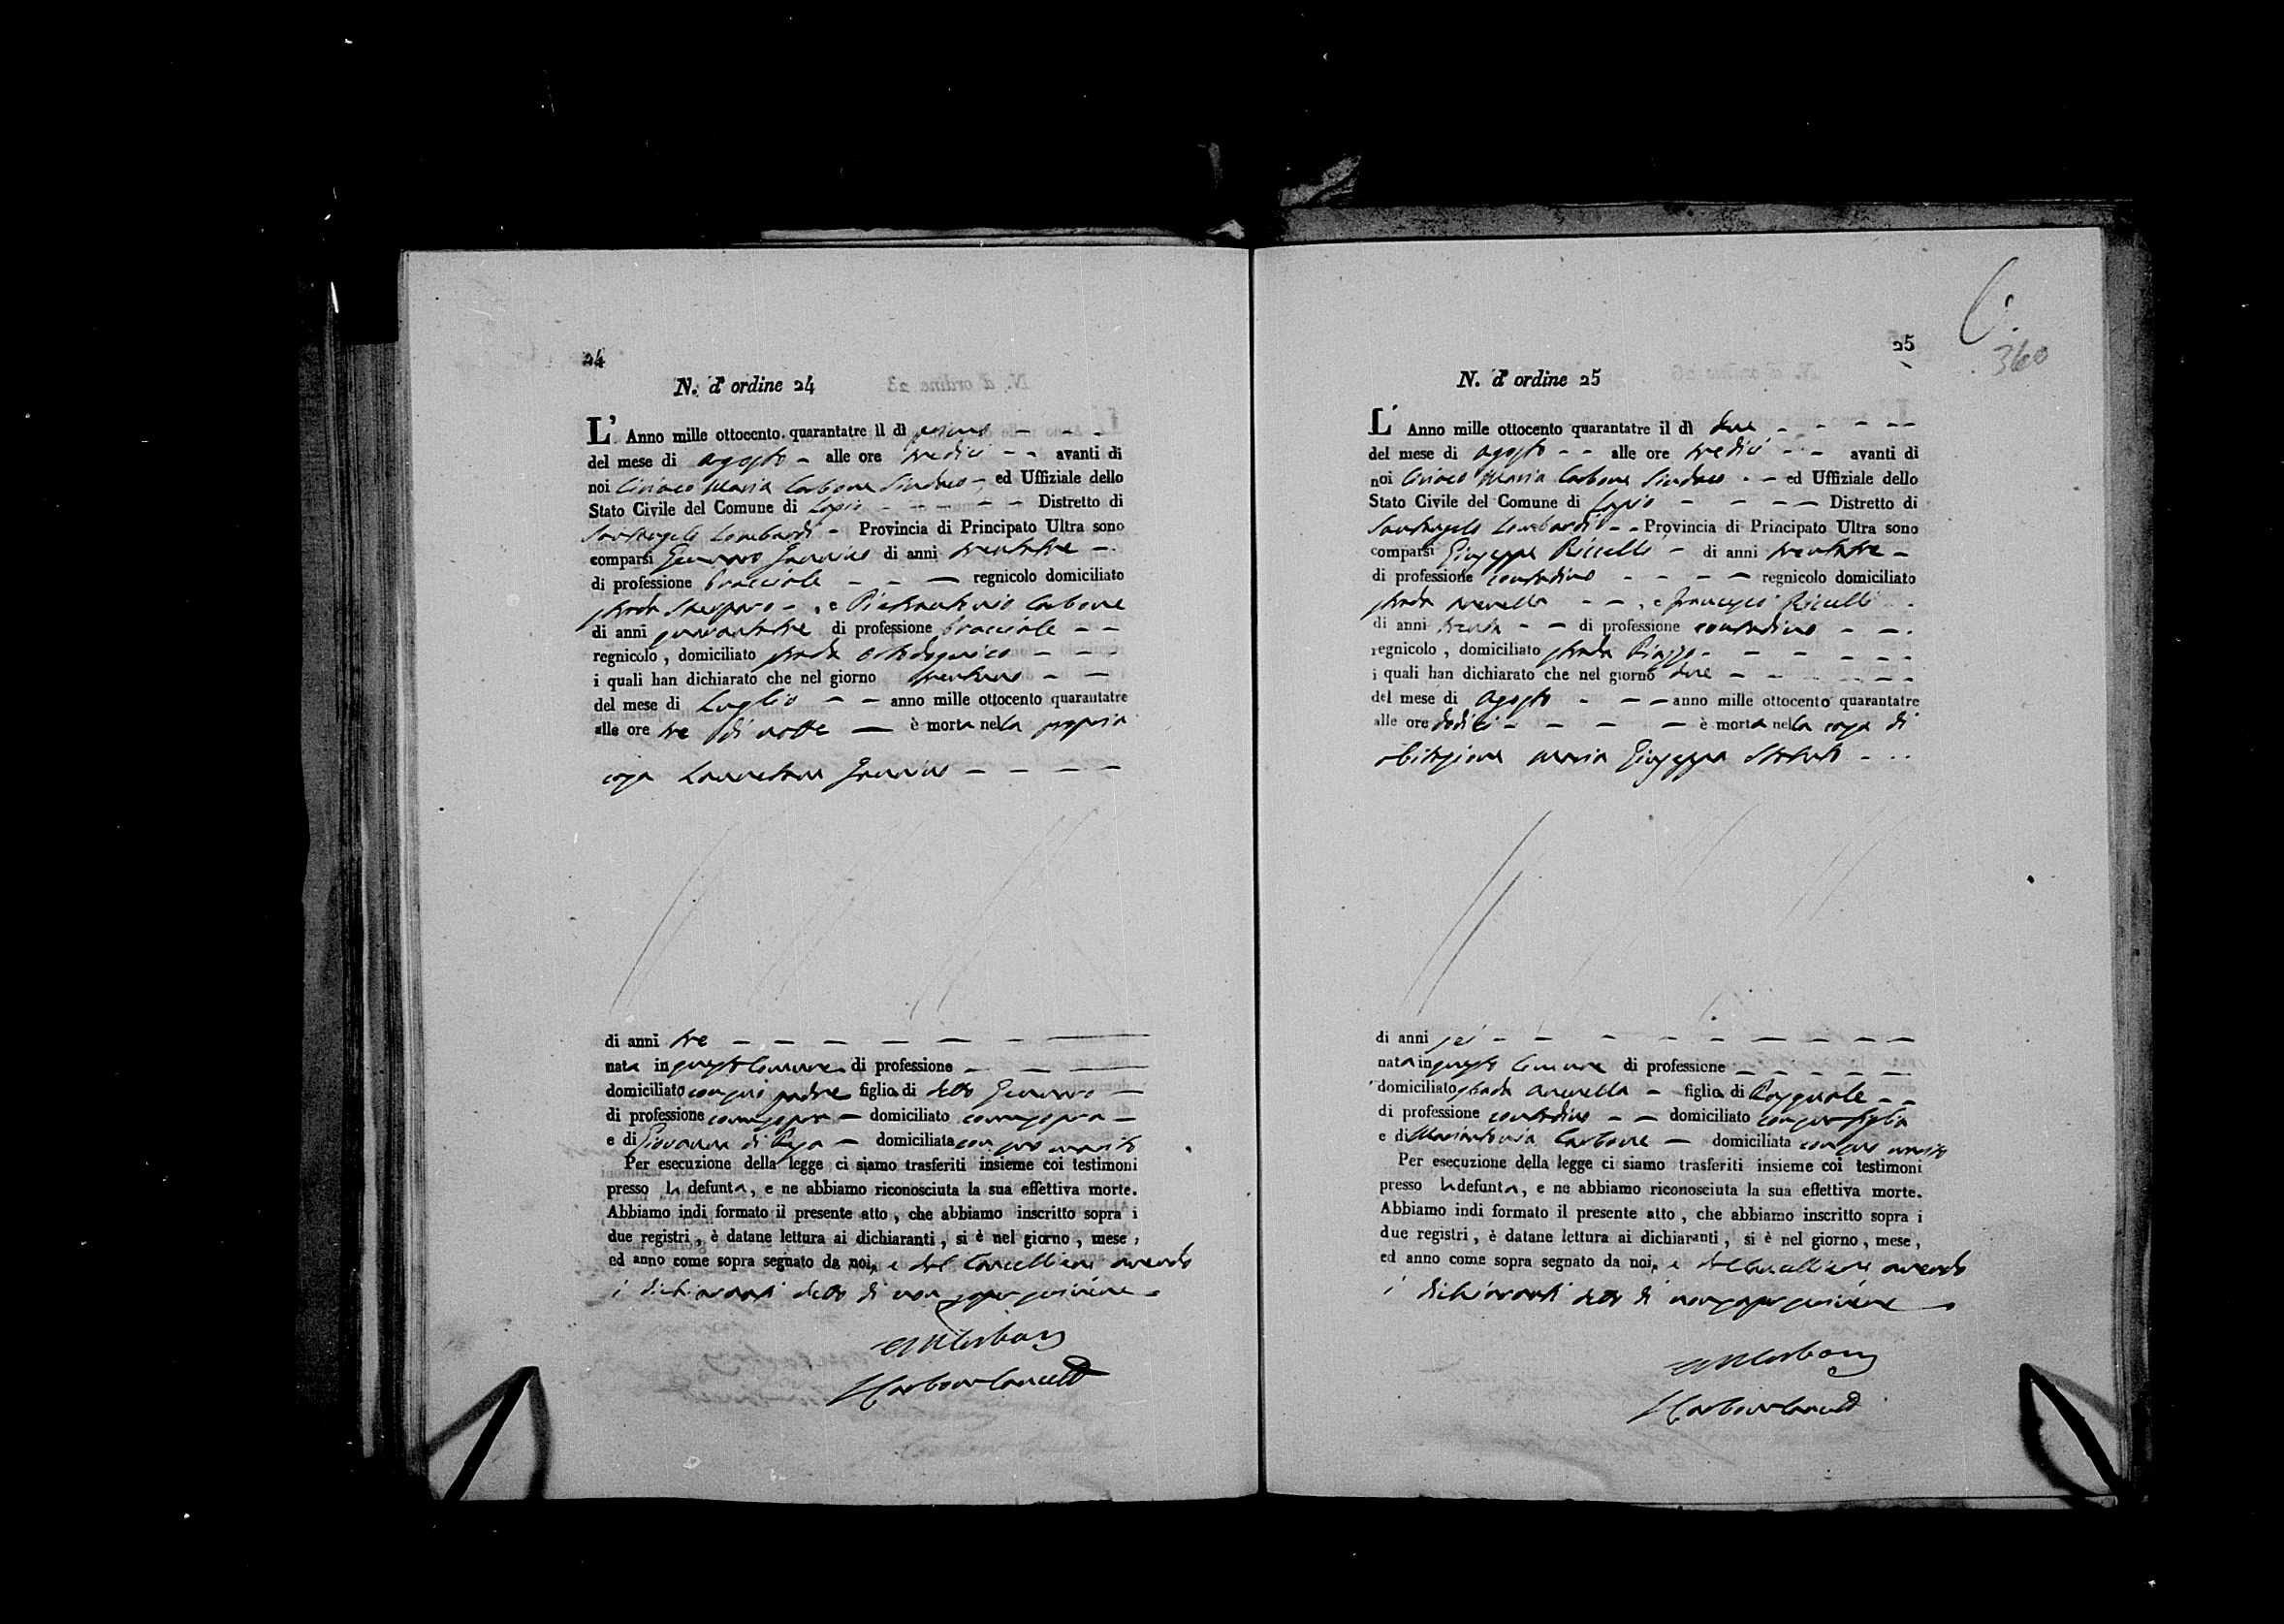 24
N. d' ordine 24
L' Anno mille ottocento quarantatre il dì primo
del mese di agosto alle ore tredici avanti di
noi Ciriaco Maria Carbone Sindaco ed Uffiziale dello
Stato Civile del Comune di Lapio Distretto di
Santangelo Lombardi Provincia di Principato Ultra sono
comparsi Gennaro di anni trentatre
di professione bracciale regnicolo domiciliato
strada , e Pietrantonio Carbone
di anni quarantatre di professione bracciale
regnicolo , domiciliato strada
i quali han dichiarato che nel giorno trentuno
del mese di Luglio anno mille ottocento quarantatre
alle ore tre di notte è morta nella propria
casa
di anni tre
nata in questo Comune di professione
domiciliato con suo padre figlia di detto Gennaro
di professione come sopra domiciliato come sopra
e di Giovanna di domiciliata con suo marito
Per esecuzione della legge ci siamo trasferiti insieme coi testimoni
presso la defunta, e ne abbiamo riconosciuta la sua effettiva morte.
Abbiamo indi formato il presente atto , che abbiamo inscritto sopra i
due registri , è datane lettura ai dichiaranti , si è nel giorno , mese ,
ed anno come sopra segnato da noi, e dal Cancelliere avendo
i dichiaranti detto di non saper scrivere
CMCarbone
Carbone Cancell
25
360
N. d' ordine 25
L' Anno mille ottocento quarantatre il dì due
del mese di agosto alle ore tredici avanti di
noi Ciriaco Maria Carbone Sindaco ed Uffiziale dello
Stato Civile del Comune di Lapio Distretto di
Santangelo Lombardi Provincia di Principato Ultra sono
comparsi Giuseppe Riccelli di anni trentatre
di professione contadino regnicolo domiciliato
strada Arenella , e Francesco Riccelli
di anni trenta di professione contadino
regnicolo , domiciliato strada Piazza
i quali han dichiarato che nel giorno due
del mese di agosto anno mille ottocento quarantatre
alle ore dodici è morta nella casa di
abitazione Maria Giuseppa
di anni sei
nata in questo Comune di professione
domiciliato strada Arenella figlia di Pasquale
di professione contadino domiciliato con sua figlia
e di Mariantonia Carbone domiciliata con suo marito
Per esecuzione della legge ci siamo trasferiti insieme coi testimoni
presso la defunta, e ne abbiamo riconosciuta la sua effettiva morte.
Abbiamo indi formato il presente atto , che abbiamo inscritto sopra i
due registri , è datane lettura ai dichiaranti , si è nel giorno , mese ,
ed anno come sopra segnato da noi, e dal Cancelliere avendo
i dichiaranti detto di non saper scrivere
CMCarbone
Carbone Cancell